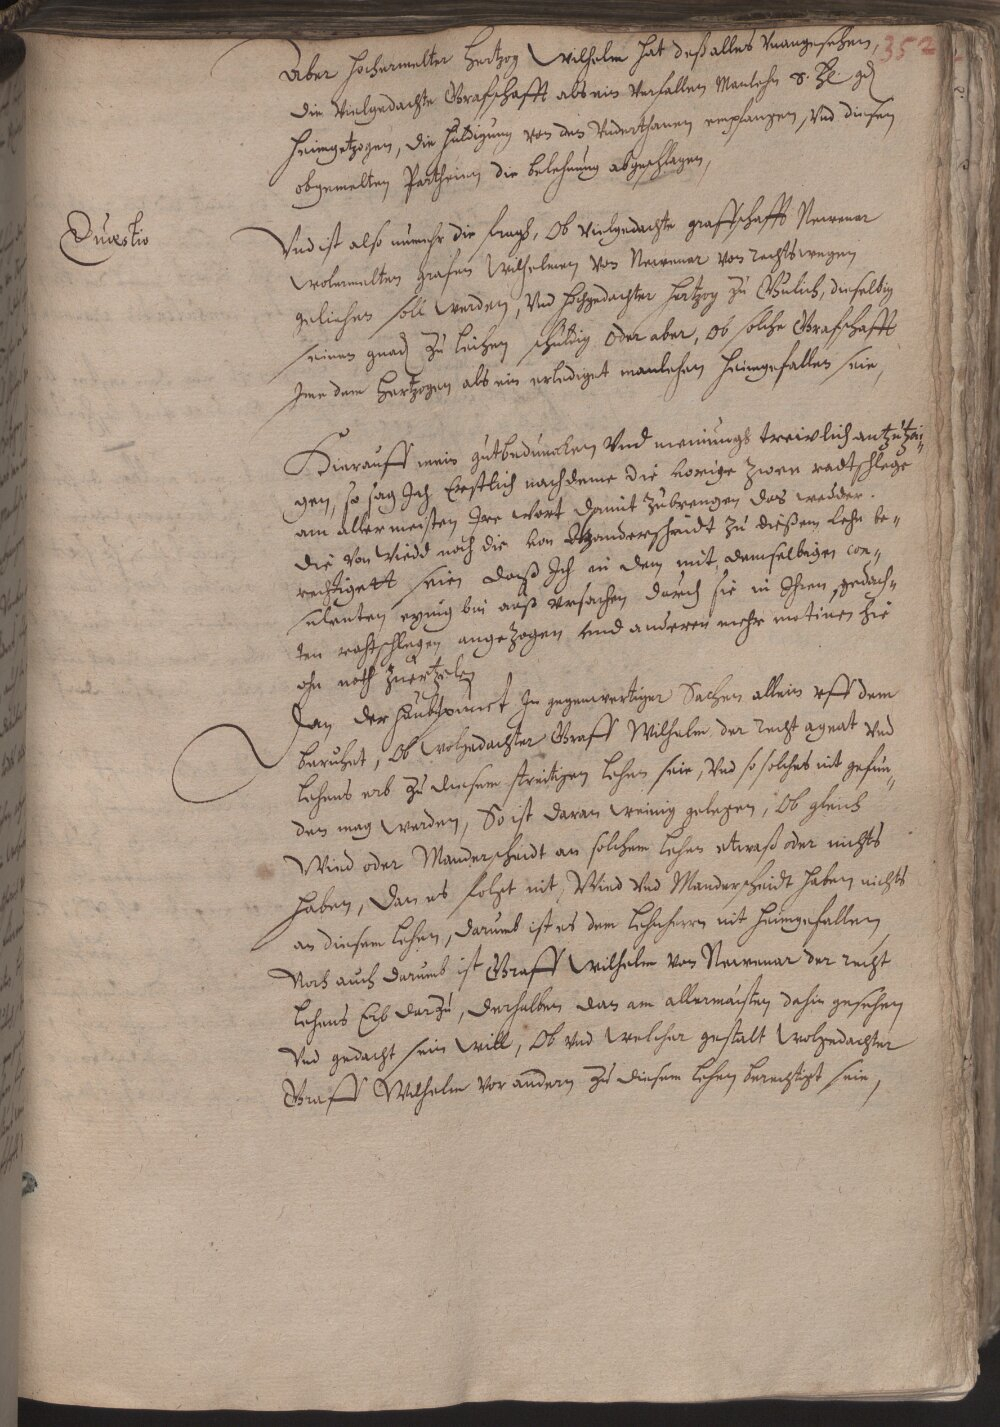 352
Aber hochermelter Hertzog Wilhelm hat deß alles vnangesehen,
die vielgedachte Graffschafft als ein verfallen Manlehn
heimgetzogen, die Huldigung von den Vnderthanen empfangen, vnd diesen
obgemelten Partheien die belehnung abgeschlagen,
Quæstio
Vnd ist also nunmehr die fragh, Ob vielgedachte graffschafft Newenar
wolermelten grafen Wilhelmen von Newenar von rechtswegen
geliehen soll werden, vnd hochgedachter Hertzog zu Gulich, dieselbig
seinen gnad zu leihen schuldig oder aber, ob solche Graffschafft
Jme dem Hertzogen als ein erlediget manlehen heimgefallen seie,
Hierauff mein gutbeduncken vnd meinungh treiwlich antzutzai-
gen, so sag Jch Erstlich nachdeme die vorige zwen radtschlege
am allermeisten Jre wort damit zubrengen das wedder
die von Wiedd noch die von Manderscheidt zu dießem Lehn be-
rechtigett seien daß Jch in dem mit demselbigen con-
sulenten eynig bin auß vrsachen durch sie in Jhren gedach-
ten rathschlegen angezogen vnd anderen mehr motiuen hie
ohn noth zuertzelen
Dan der haubtpunct Jn gegenwertiger Sachen allein vff dem
beruhet, Ob wolgedachter Graff Wilhelm der recht agnat vnd
lehens erb zu diesem streitigen lehen seie, vnd so solches nit gefun-
den mag werden, So ist daran weinig gelegen, Ob gleich
Wied oder Manderscheidt an solchem lehen etwaß oder nichts
haben, dan es folget nit, Wied vnd Manderscheidt haben nichts
an diesem lehen, darumb ist es dem lehnherrn nit heimgefallen,
Noch auch darumb ist Graff Wilhelm von Newenar der recht
lehens Erb darzu, derhalben dan am allermeisten dahin gesehen
vnd gedacht sein will, Ob vnd welcher gestalt wolgedachter
Graff Wilhelm vor andern zu diesem lehen berechtigt seie,